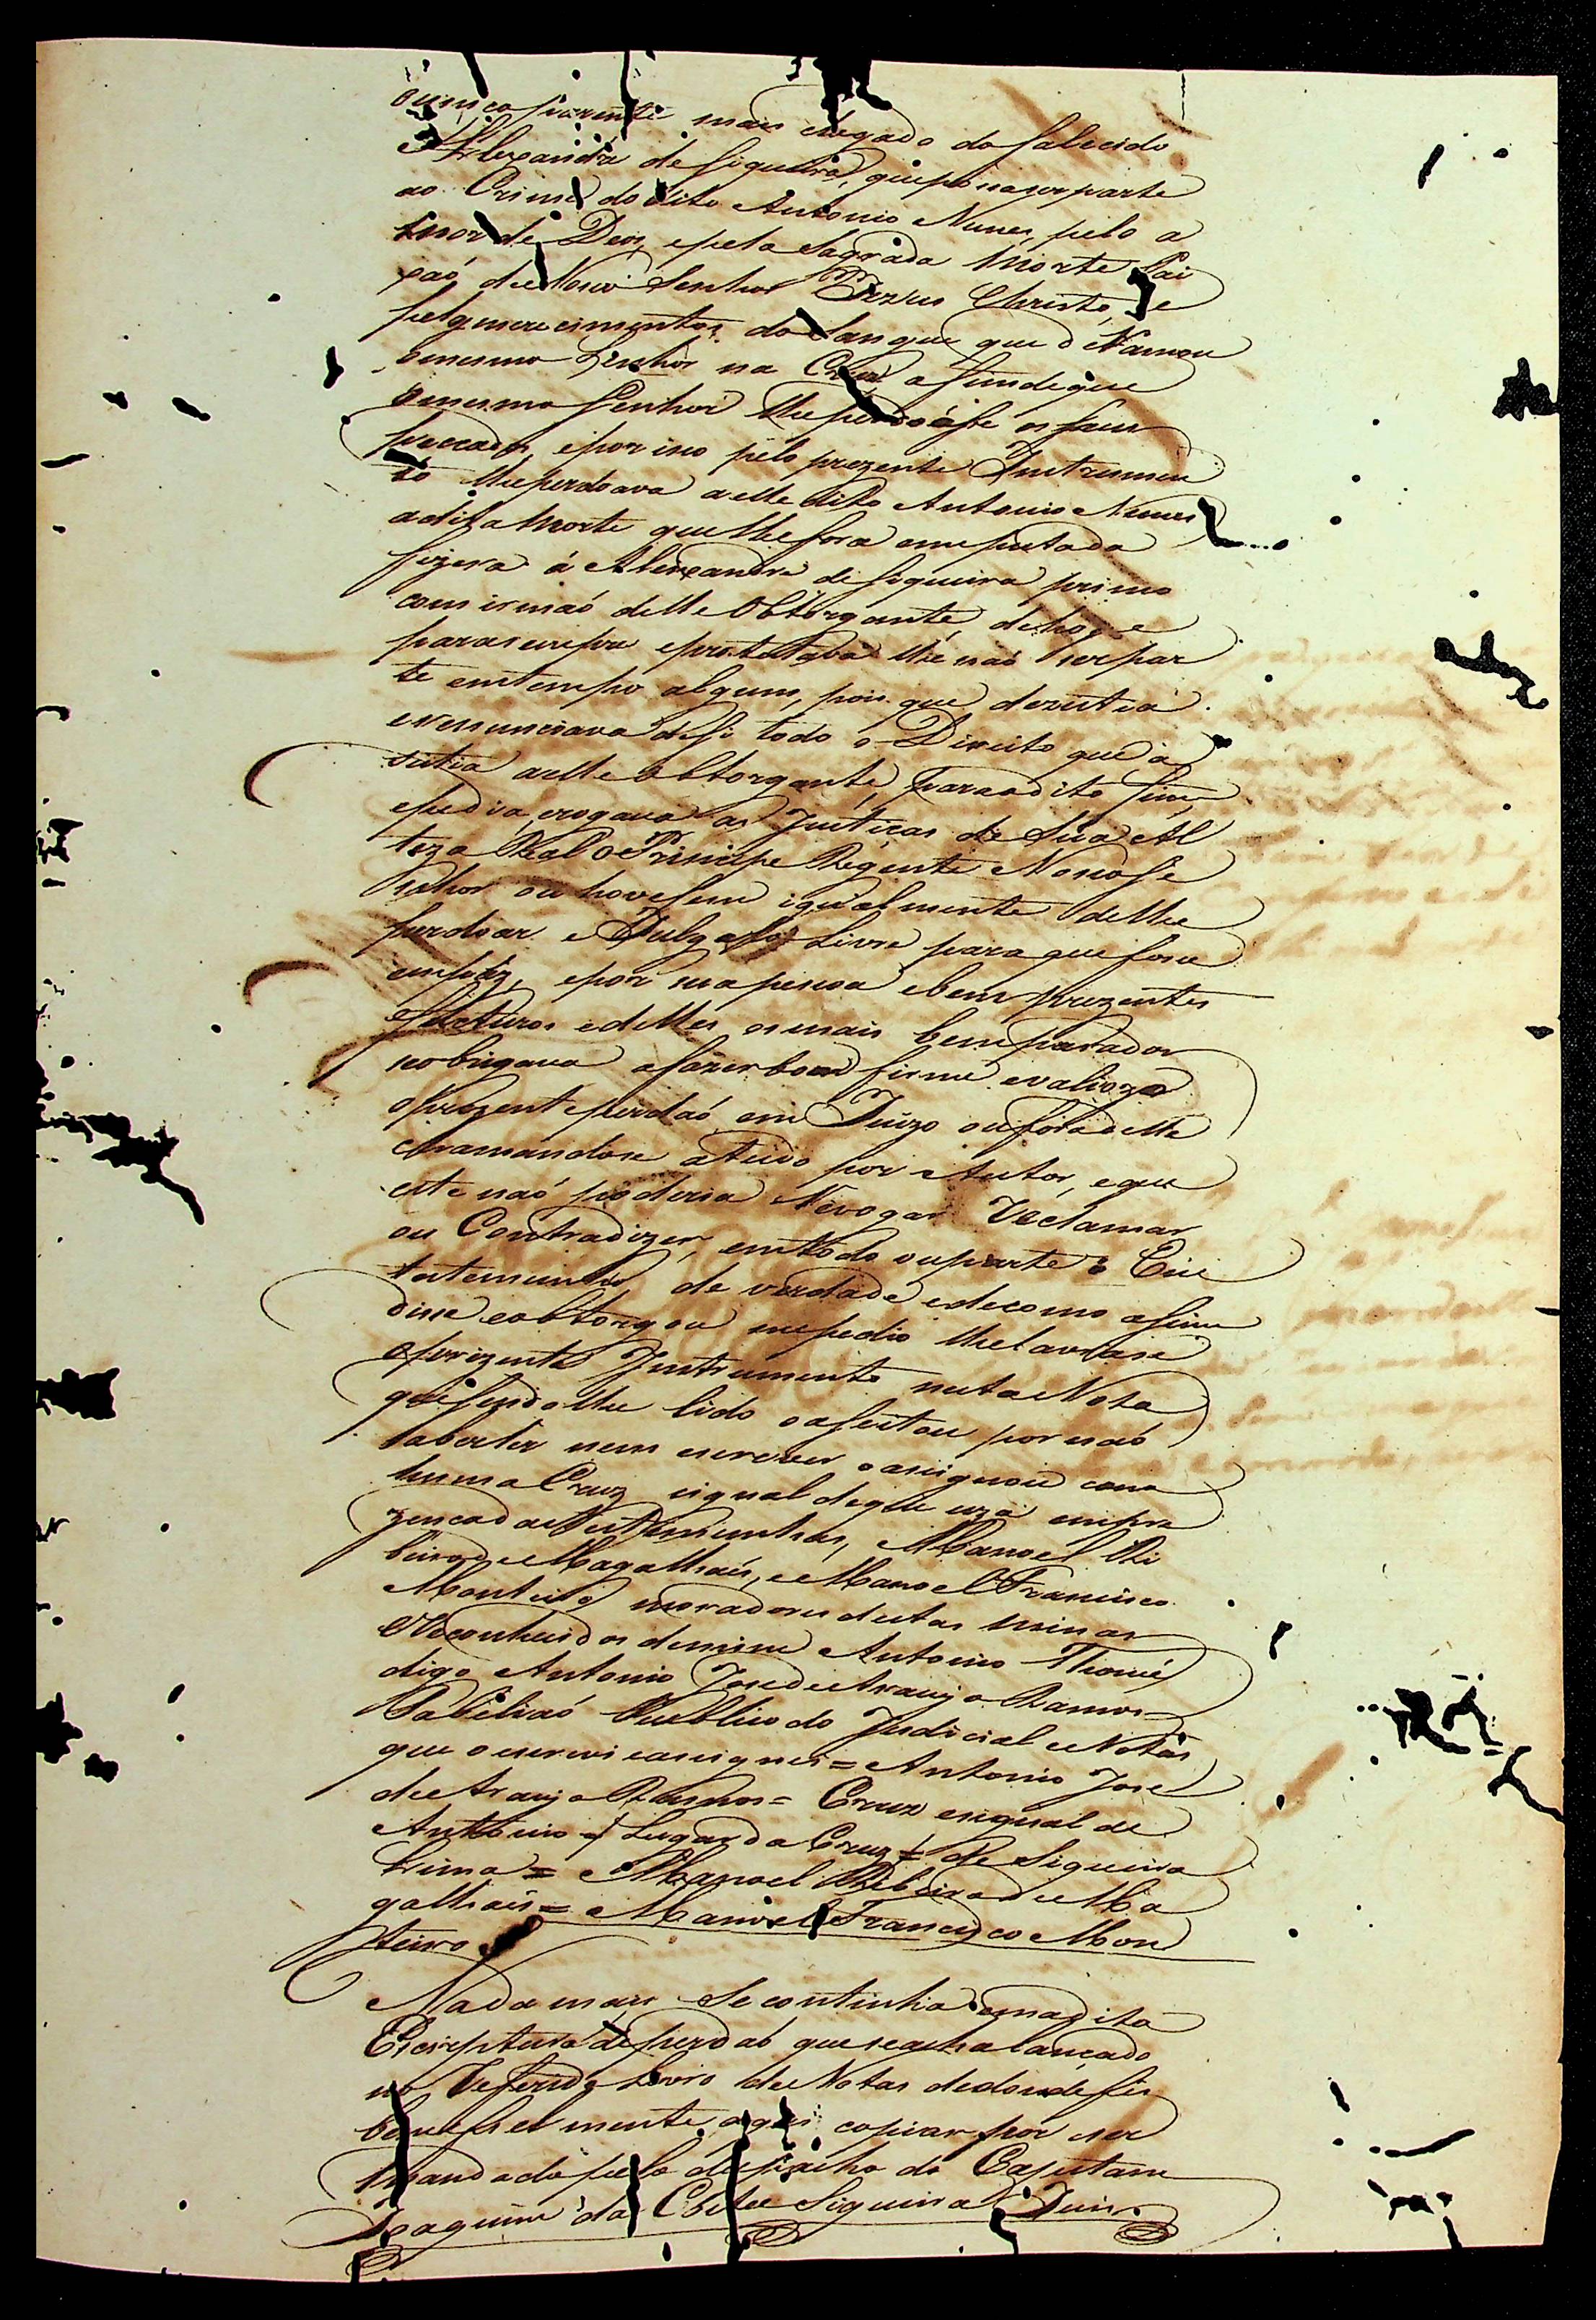 o unico parente mais chegado do falecido
Alexandre de Siqueira, que podia ser parte
ao Crime do dito Antonio Nunes, pelo a
mor de Deos, e pela Sagrada Morte Pai
xaõ de Nosso Senhor Jezus Christo, e
pelos merecimentos do Sangue que derramou
o mesmo Senhor na Cruz a fim de que
o mesmo Senhor lhe perdoáse os seus
peccados, e por isso pelo prezente Instrumen
to lhe perdoava a elle dito Antonio Nunes
a dita Morte que lhe fora emputada
fizera á Alexandre de Siqueira primo
com irmaõ delle Obtorgante, de hoje
para sempre e protestava lhe naõ ser par
te em tempo algum, pois que dezistia
e renunciava de si todo o Direito que a
sistia a elle obtorgante, para o dito fim,
e pedia, e rogava as Justiças de Sua Al
teza Real o Principe Regente Nosso Se
nhor ou houvesem igualmente de lhe
perdoar e Julgalo Livre para que fosse
em paz, e por sua pesoa e bens prezentes
e futuros e delles os mais bem parados
se obrigava a fazer bom firme e valiozo
o prezente perdaõ em Juizo ou fora delle
chamandose a tudo por Autor, e que
este naõ poderia Revogar Reclamar
ou Contradizer, em todo ou parte: Em
testemunho de verdade e de como asim
dise e obtorgou me pedio lhe lavrase
o prezente Instrumento nesta Nota
que sendo lhe lido o aseitou por naõ
saber ler nem escrever o asignou com
huma Cruz signal de que uza em pre
zenca das Testemunhas, Manoel Ri
beiro de Magalhaẽs, e Manoel Francisco
Monteiro moradores destas Minas
Reconhecidos de mim Antonio Thomé
digo Antonio Jose de Araujo Ramos
Tabeliaõ Publico do Judicial e Notas
que o escrevi e asignei = Antonio Jose
de Araujo Ramos = Cruz e signal de
Antonio + Lugar da Cruz + de Siqueira
Lima = Manoel Ribeiro de Ma
galhaẽs = Manoel Francisco Mon
teiro
Nada mais se continha em a dita
Escriptura de perdaõ que se acha lançado
no Referido Livro de Notas de donde fiz
bem e fiel mente aqui copiar por ser
mandado pelo despacho do Capitam
Joaquim da Costa Siqueira Juiz